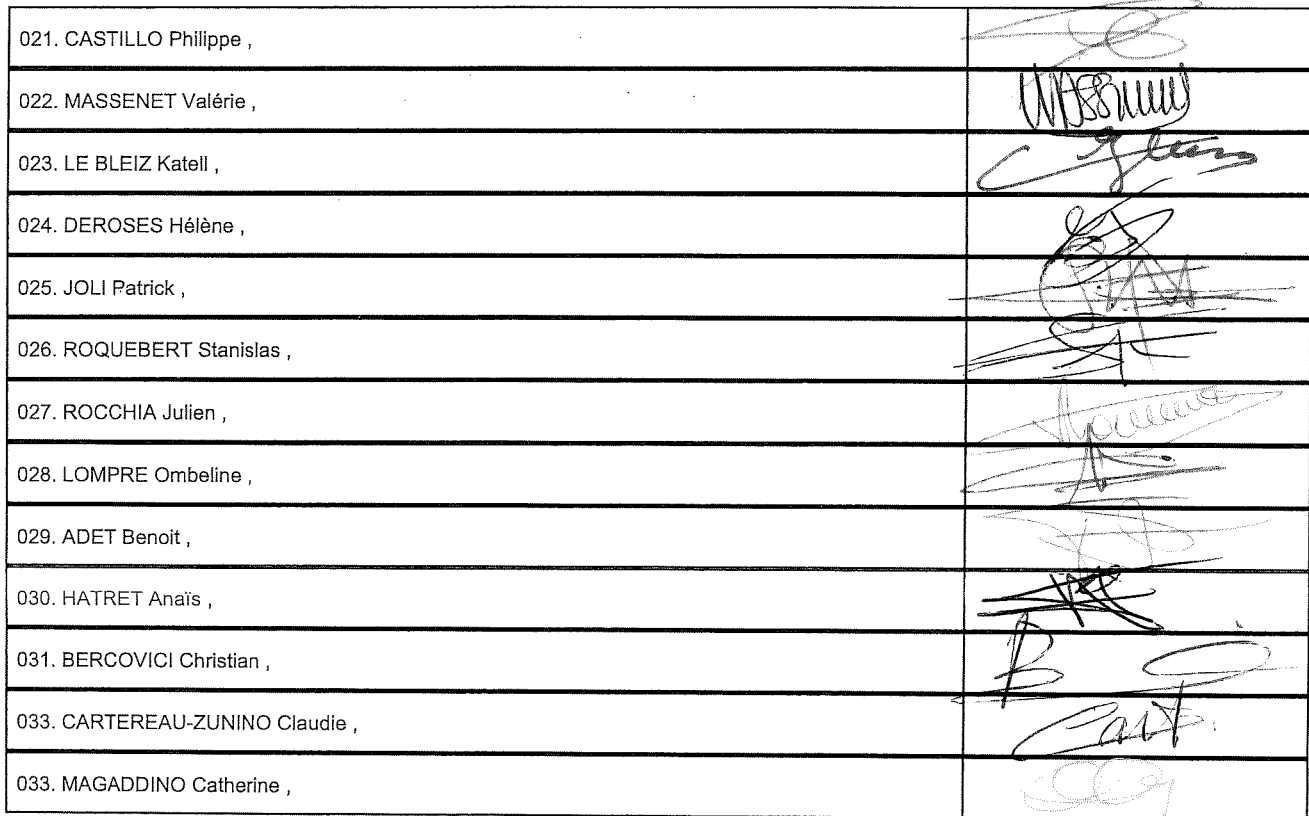 021. CASTILLO Philippe ,
022. MASSENET Valérie ,
023. LE BLEIZ Katell ,
024. DEROSES Hélène ,
025. JOLI Patrick ,
026. ROQUEBERT Stanislas ,
027. ROCCHIA Julien ,
028. LOMPRE Ombeline ,
029. ADET Benoit ,
030. HATRET Anaïs ,
031. BERCOVICI Christian ,
033. CARTEREAU-ZUNINO Claudie ,
033. MAGADDINO Catherine ,